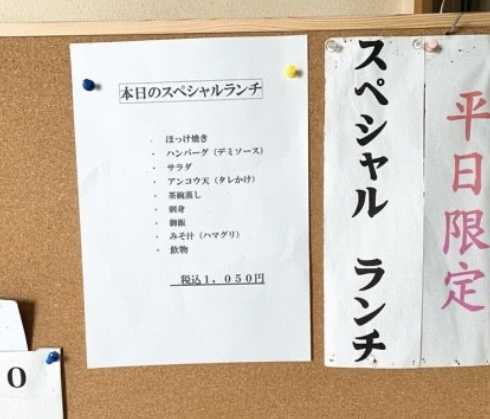 本日のスペシャルランチ
・ほっけ焼き
・ハンバーグ（デミソース）
・サラダ
・アンコウ天（タレかけ）
・茶碗蒸し
・刺身
・御飯
・みそ汁（ハマグリ）
・飲物
税込１，０５０円
スペシャル ランチ
平日限定
0